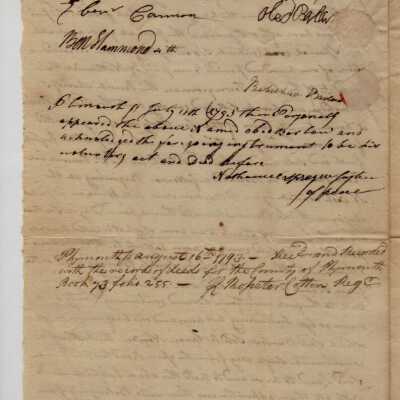 Ebenr Cannon
Hammond 4th
Plimouth ss July 11th 1793 then Personely
appeared the above Named obed Barlow and
acknolegd the foregoing instrument to be his
voluntary act and Deed before
Nathaniel Sprague Justice
of peace
Plymouth ss august 16th 1793 — Recd and Recorded
with the records of deeds for the County of Plymouth
Book 73 folio 255 — pr Rossiter Cotton Regr